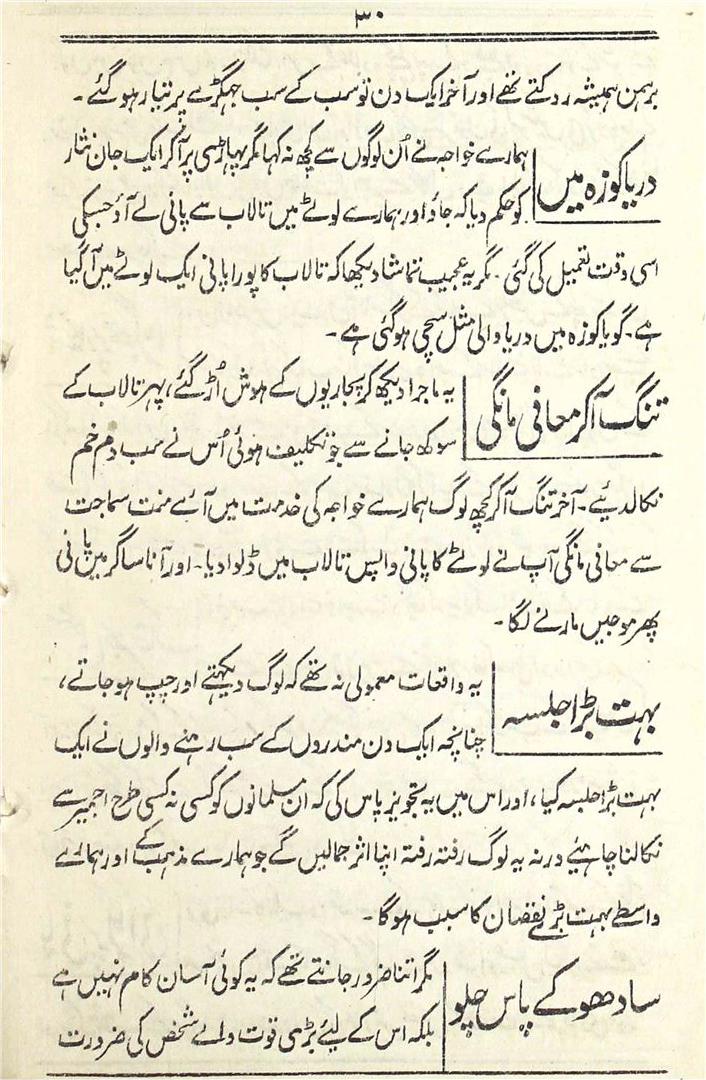 ۳۰
برہمن ہمیشہ روکتے تھے اور آخر ایک دن تو سب کے سب جہگڑے پر تیار ہو گئے۔
دریا کوزہ میں
ہمارے خواجہ نے اُن لوگوں سے کچھ نہ کہا مگر پہاڑی پر آکر ایک جان نثار
کو حکم دیا کہ جاؤ اور ہمارے لوٹے میں تالاب سے پانی لے آؤ جسکی
اسی وقت تعمیل کی گئی۔ مگر یہ عجیب تماشا دیکھا کہ تالاب کا پورا پانی ایک لوٹے میں آگیا
ہے۔ گویا کوزہ میں دریا والی مثل سچی ہو گئی ہے۔
تنگ آکر معافی مانگی
یہ ماجرا دیکھ کر پجاریوں کے ہوش اُڑ گئے، پہر تالاب کے
سوکھ جانے سے جو تکلیف ہوئی اُس نے سب دم خم
نکالدئیے۔ آخر تنگ آکر کچھ لوگ ہمارے خواجہ کی خدمت میں آئے منت سماجت
سے معافی مانگی آپ نے لوٹے کا پانی واپس تالاب میں ڈلوادیا۔ اور آنا ساگر میں پانی
پھر موجیں مارنے لگا۔
بہت بڑا جلسہ
یہ واقعات معمولی نہ تھے کہ لوگ دیکہتے اور چپ ہو جاتے،
چنانچہ ایک دن مندروں کے سب رہنے والوں نے ایک
بہت بڑا جلسہ کیا، اور اس میں یہ تجویز پاس کی کہ ان مسلمانوں کو کسی نہ کسی طرح اجمیر سے
نکالنا چاہئیے ورنہ یہ لوگ رفتہ رفتہ اپنا اثر جمالیں گے جو ہمارے مذہب کے اور ہمارے
واسطے بہت بڑے نقصان کا سبب ہوگا۔
سادھو کے پاس چلو
مگر اتنا ضرور جانتے تھے کہ یہ کوئی آسان کام نہیں ہے
بلکہ اس کے لیئے بڑی قوت والے شخص کی ضرورت